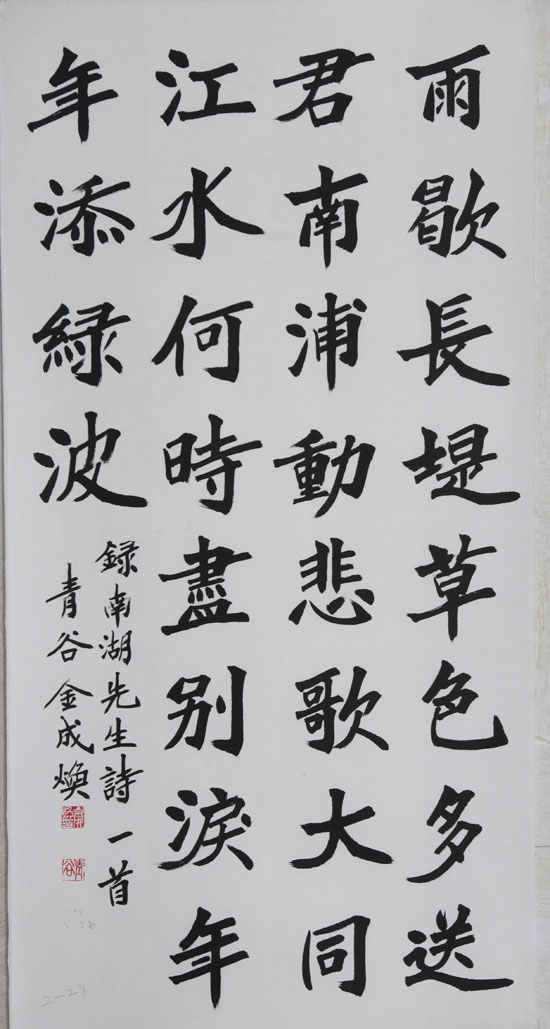 雨歇長堤草色多送
君南浦動悲歌大同
江水何時盡别淚年
年添緑波
録南湖先生詩一首
青谷金成煥
青谷
2-29